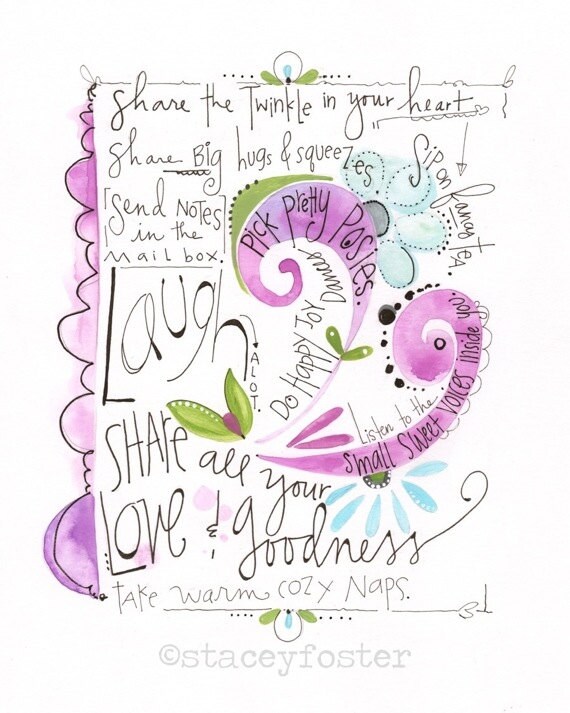 Share the Twinkle in your heart
Share Big hugs & squeezes
Sip on fancy tea.
[Send Notes]
in the
mail box.
Pick Pretty Posies.
Do Happy Joy Dances!
Laugh
ALOT.
Listen to the
small sweet voices inside you
Share all your
Love & goodness
Take warm cozy Naps.
©staceyfoster